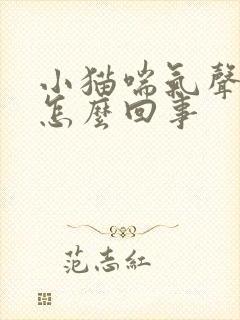 小猫喘氣聲
怎麼回事
范志紅